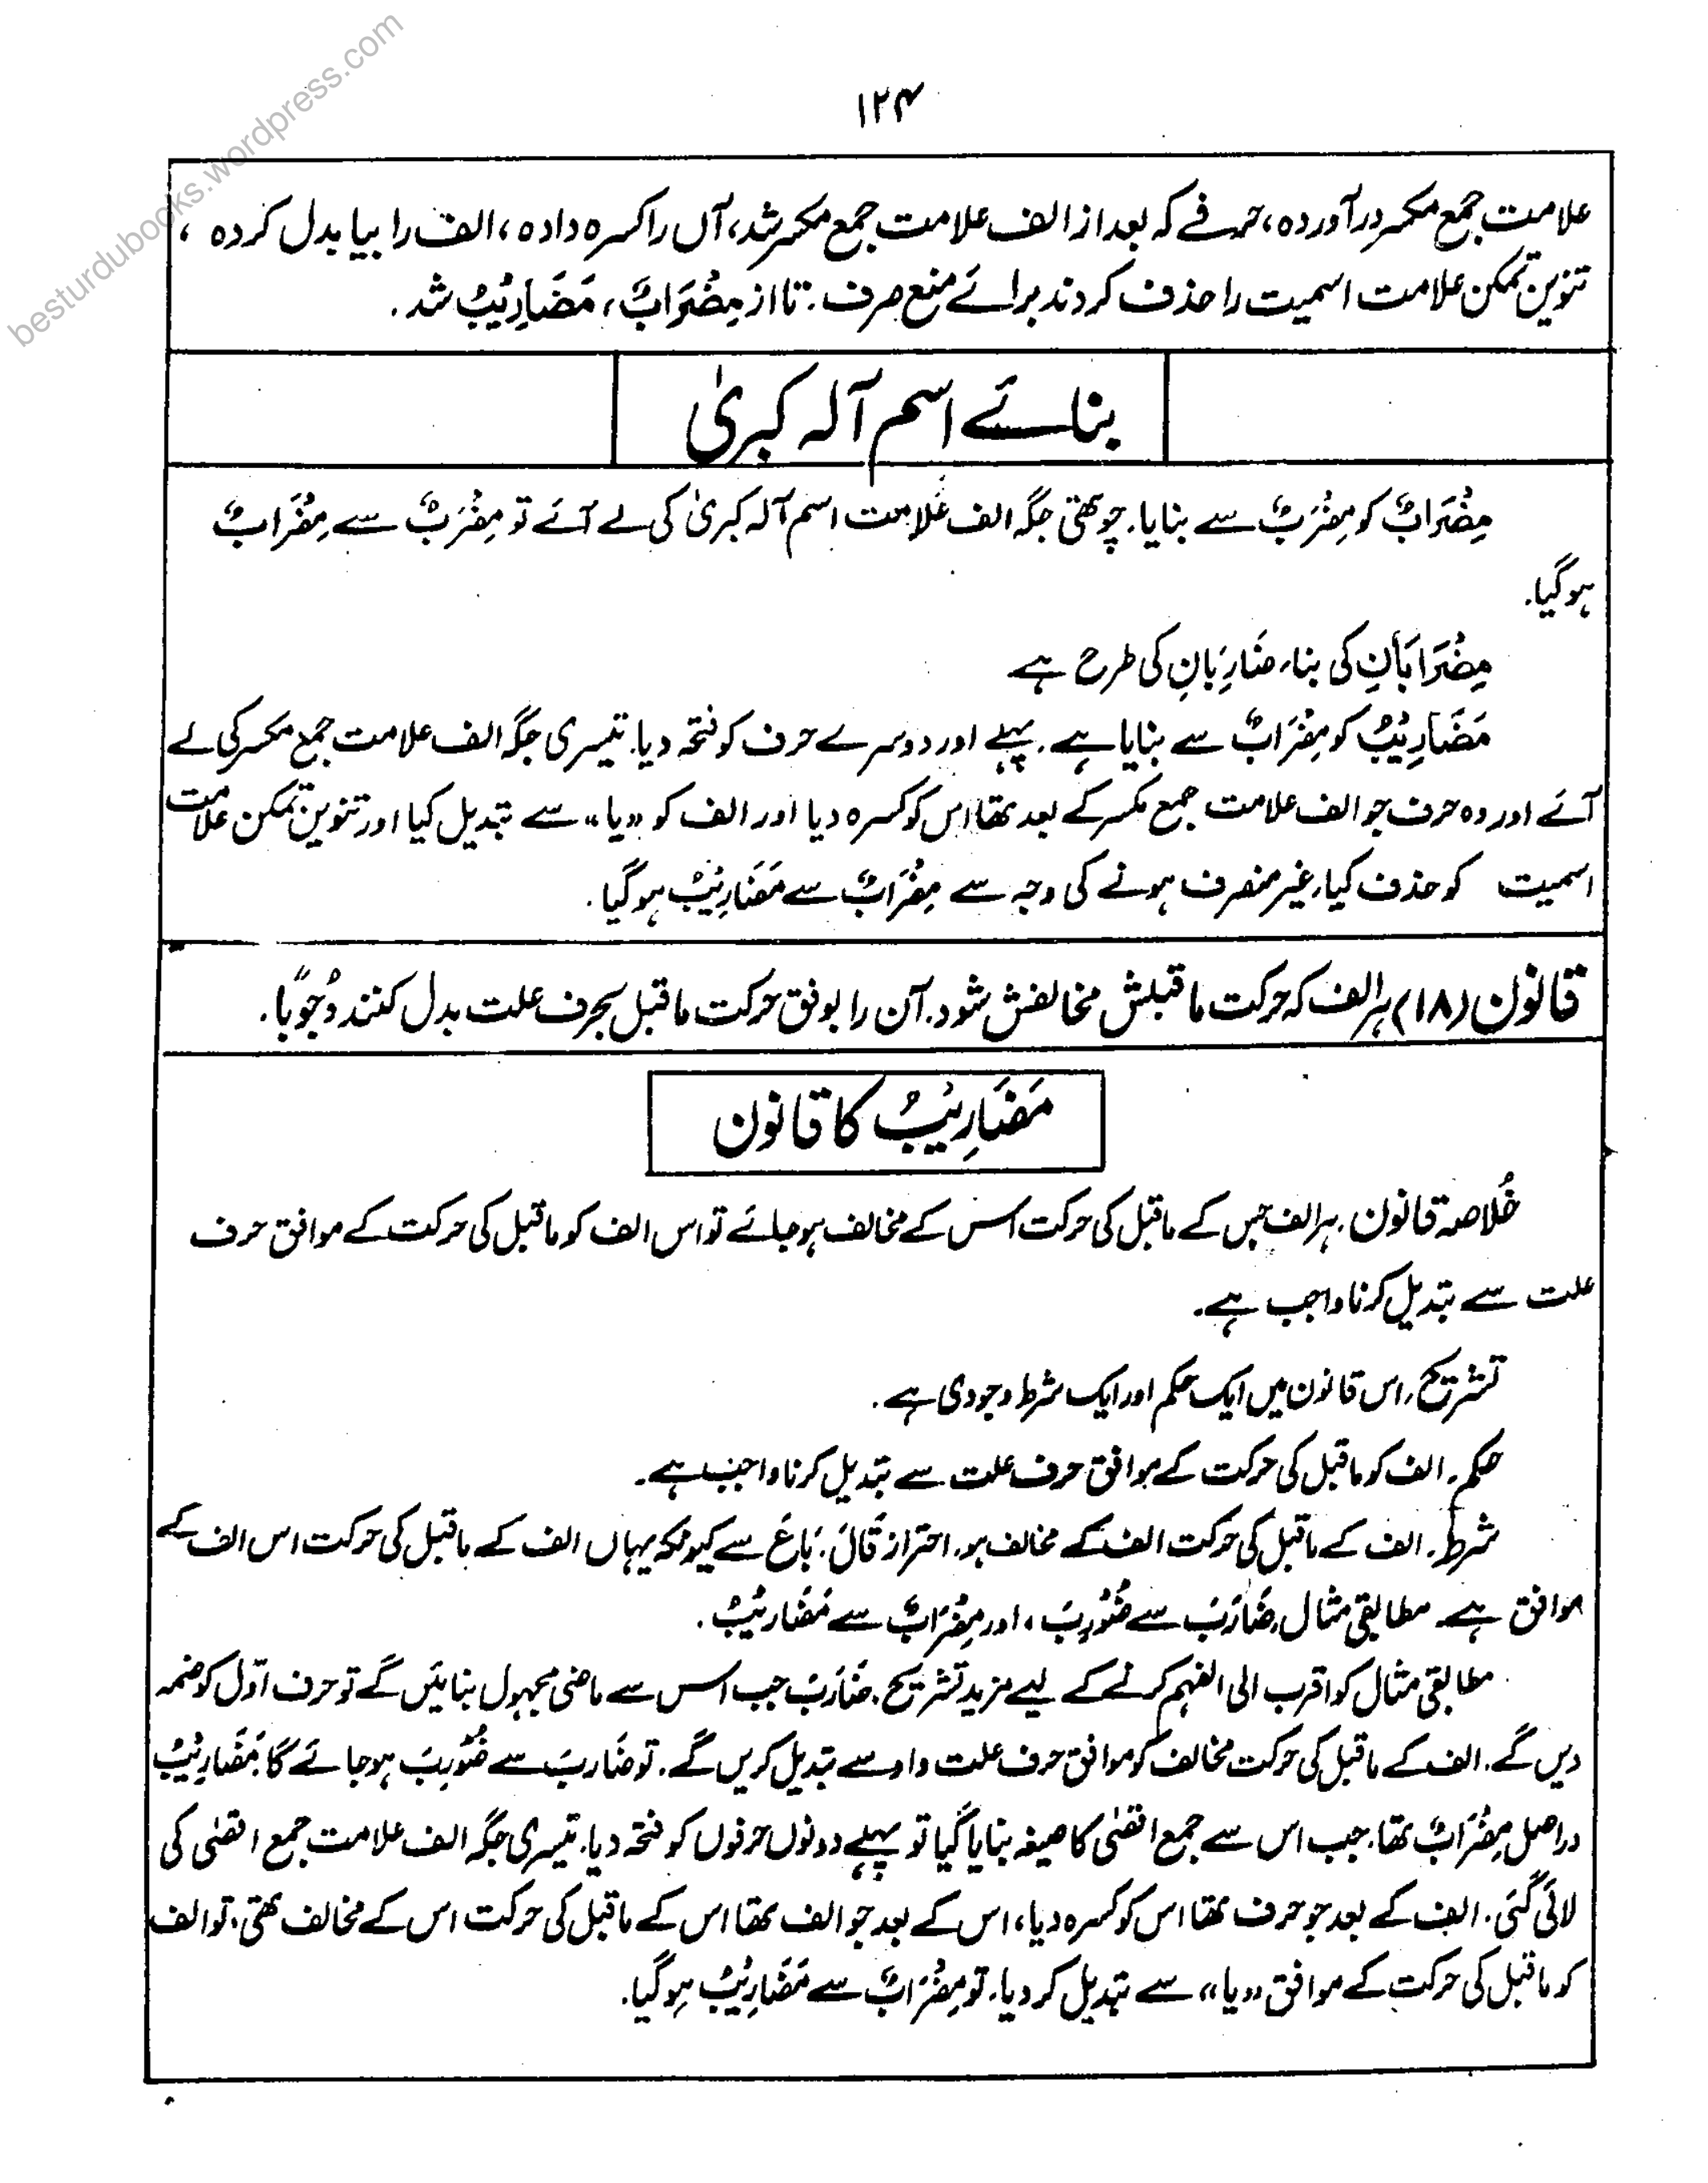 ۱۲۴
علامت جمع مکسر در آورده، حرفے کہ بعد از الف علامت جمع مکسر شد، آں را کسرہ دادہ، الف را بیا بدل کردہ،
تنوین تمکن علامت اسمیت را حذف کردند برائے منع صرف. تا از مِضْرَابٌ، مَضَارِیْبُ شد.
بنائے اسم آلہ کبریٰ
مِضْرَابٌ کو مِضْرَبٌ سے بنایا. چوتھی جگہ الف علامت اسم آلہ کبریٰ کی لے آئے تو مِضْرَبٌ سے مِضْرَابٌ
ہو گیا.
مِضْرَابَانِ کی بناء ضَارِبَانِ کی طرح ہے
مَضَارِیْبُ کو مِضْرَابٌ سے بنایا ہے. پہلے اور دوسرے حرف کو فتحہ دیا. تیسری جگہ الف علامت جمع مکسر کی لے
آئے اور وہ حرف جو الف علامت جمع مکسر کے بعد تھا اس کو کسرہ دیا اور الف کو «یا» سے تبدیل کیا اور تنوین تمکن علامت
اسمیت کو حذف کیا، غیر منصرف ہونے کی وجہ سے مِضْرَابٌ سے مَضَارِیْبُ ہو گیا.
قانون (۱۸) ہر الف کہ حرکت ماقبلش مخالفش شود. آن را بوفق حرکت ماقبل بحرف علت بدل کنند وُجُوْبًا.
مَضَارِیْبُ کا قانون
خُلاصہ قانون. ہر الف جس کے ماقبل کی حرکت اس کے مخالف ہو جائے تو اس الف کو ماقبل کی حرکت کے موافق حرف
علت سے تبدیل کرنا واجب ہے.
تشریح، اس قانون میں ایک حکم اور ایک شرط وجودی ہے.
حکم. الف کو ماقبل کی حرکت کے موافق حرف علت سے تبدیل کرنا واجب ہے.
شرط. الف کے ماقبل کی حرکت الف کے مخالف ہو. احتراز قَالَ. بَاعَ سے کیونکہ یہاں الف کے ماقبل کی حرکت اس الف کے
موافق ہے. مطابقی مثال ضَارَبَ سے ضُوْرِبَ، اور مِضْرَابٌ سے مَضَارِیْبُ.
مطابقی مثال کو اقرب الی الفہم کرنے کے لیے مزید تشریح. ضَارَبَ جب اس سے ماضی مجہول بنائیں گے تو حرف اوّل کو ضمہ
دیں گے. الف کے ماقبل کی حرکت مخالف کو موافق حرف علت واو سے تبدیل کریں گے. تو ضَارَبَ سے ضُوْرِبَ ہو جائے گا. مَضَارِیْبُ
دراصل مِضْرَابٌ تھا. جب اس سے جمع اقصٰی کا صیغہ بنایا گیا تو پہلے دونوں حرفوں کو فتحہ دیا. تیسری جگہ الف علامت جمع اقصٰی کی
لائی گئی. الف کے بعد جو حرف تھا اس کو کسرہ دیا، اس کے بعد جو الف تھا اس کے ماقبل کی حرکت اس کے مخالف تھی، تو الف
کو ماقبل کی حرکت کے موافق «یا» سے تبدیل کر دیا. تو مِضْرَابٌ سے مَضَارِیْبُ ہو گیا.
besturdubooks.wordpress.com